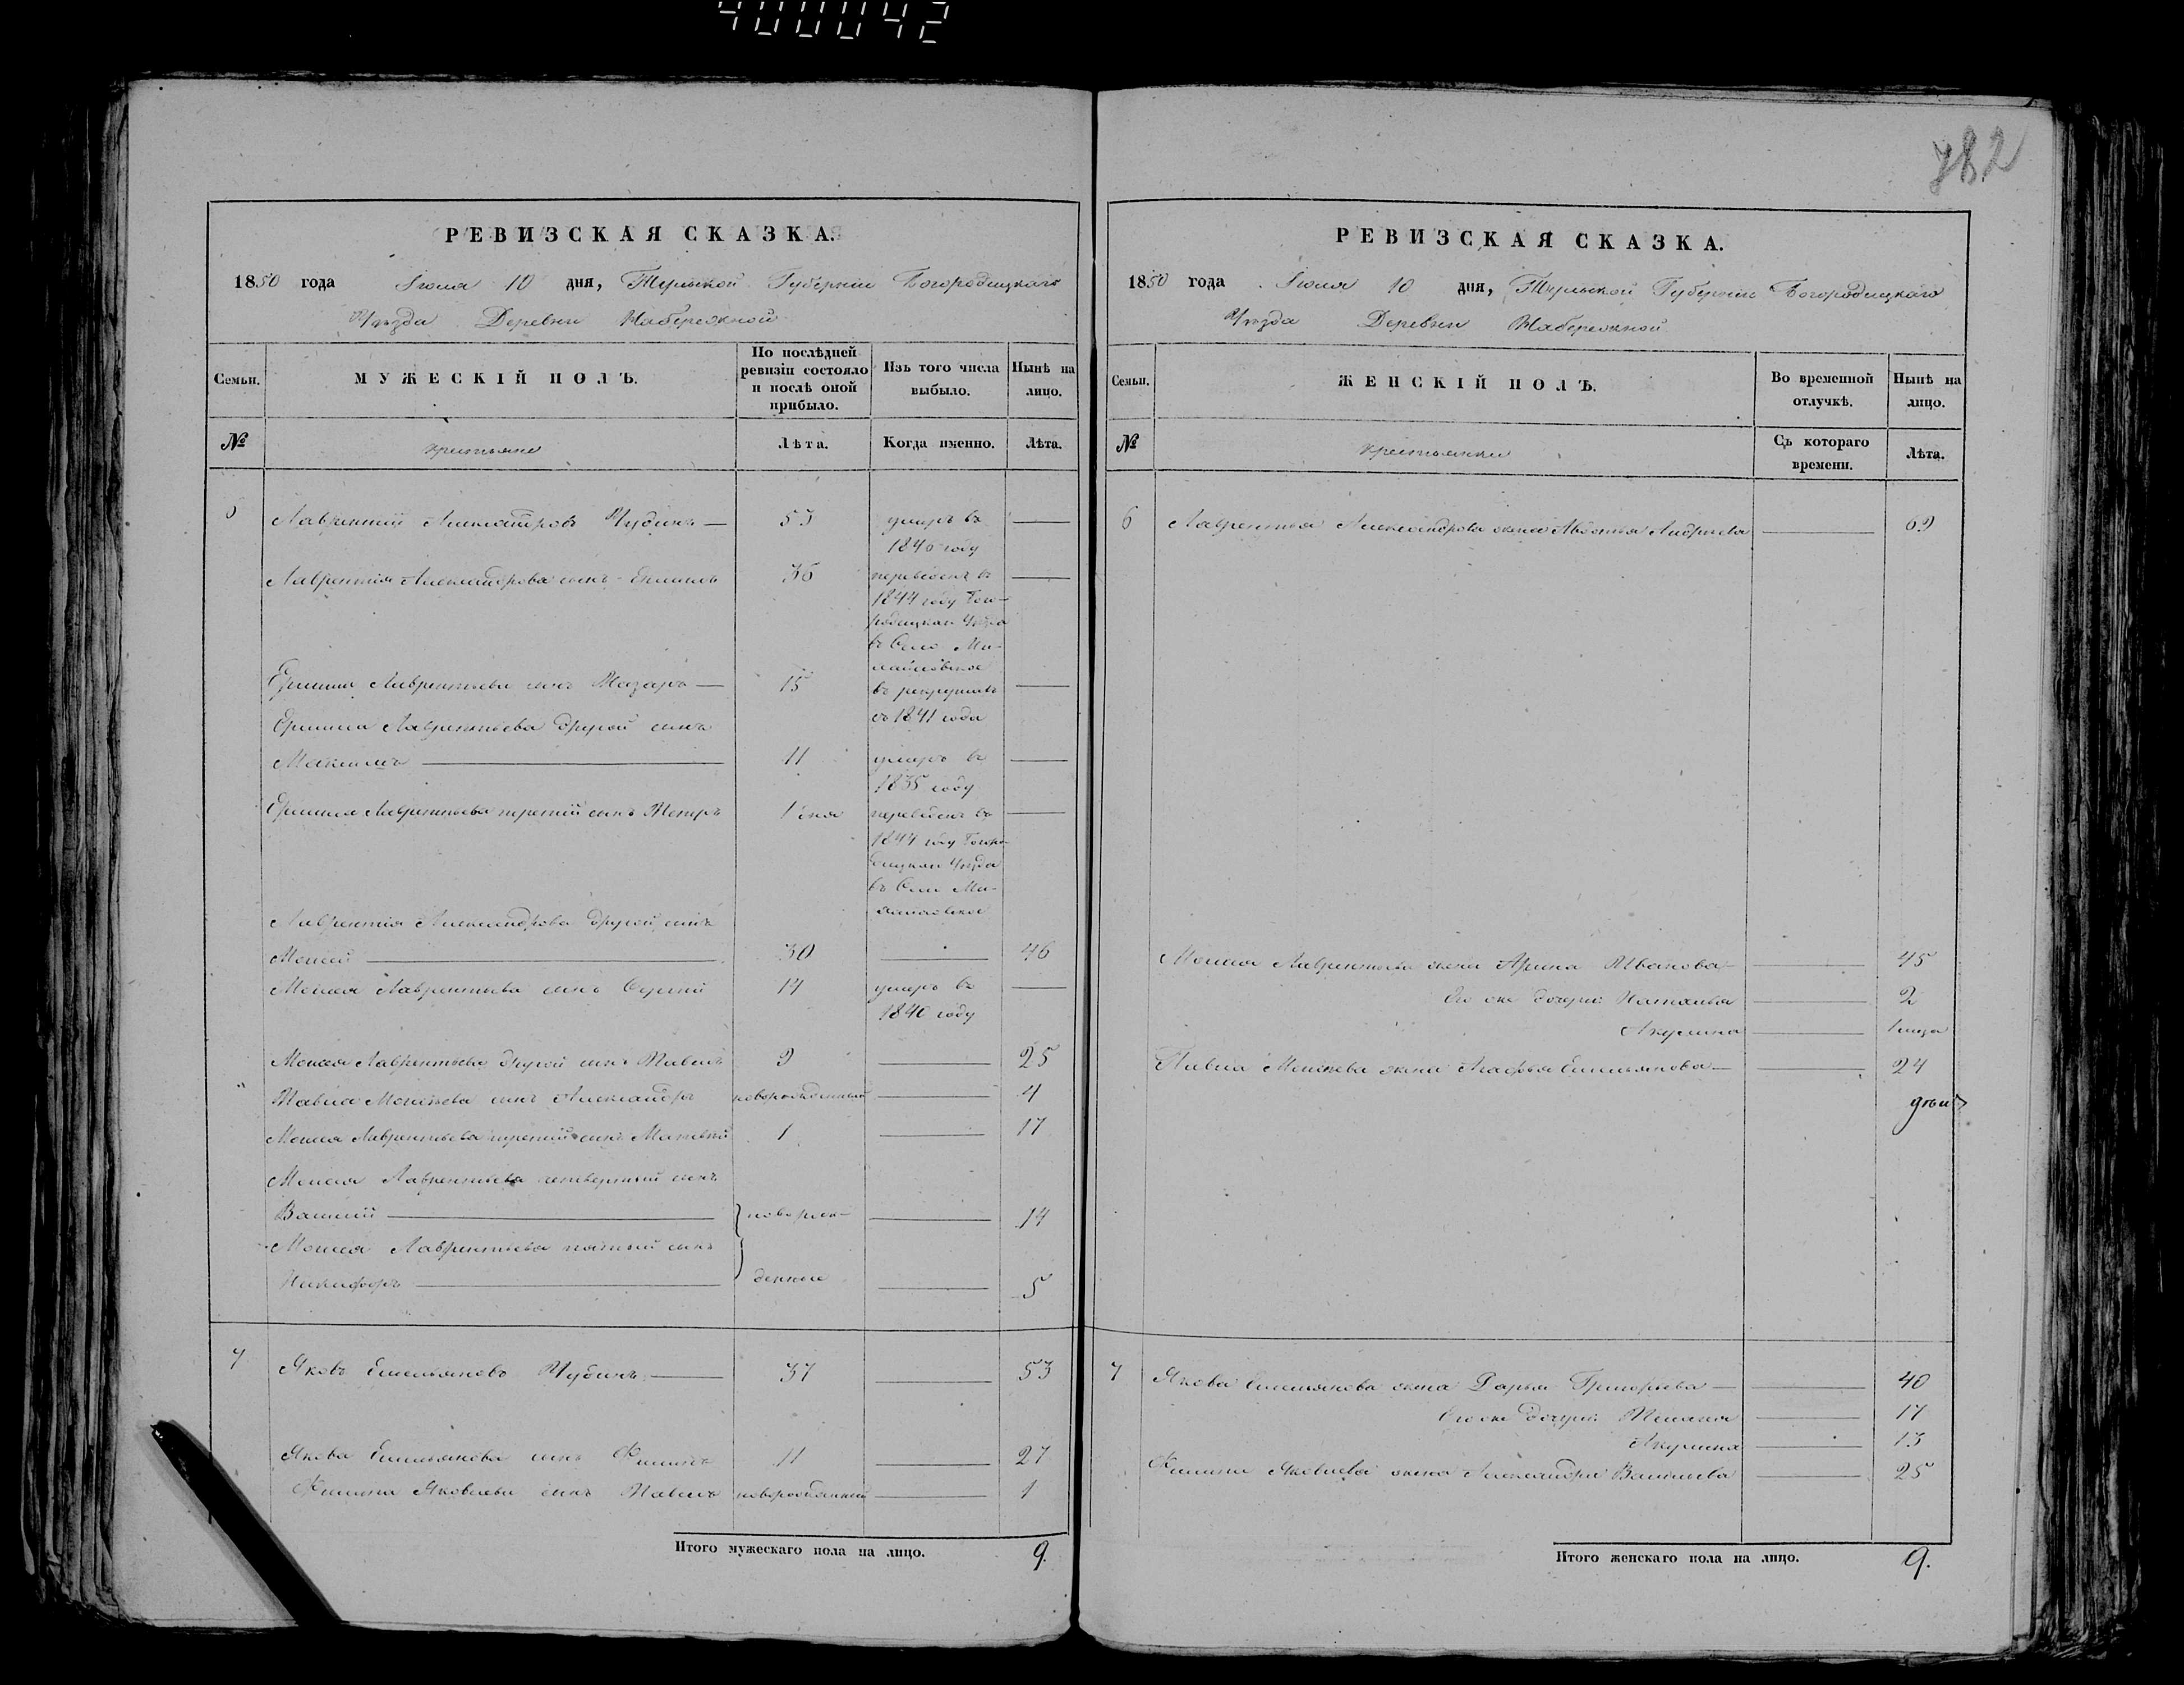 400042
782
РЕВИЗСКАЯ СКАЗКА.
1850 года Июля 10 дня, Тульской Губерніи Богородицкаго
Уѣзда Деревни Набережной
Семьи.
МУЖЕСКІЙ ПОЛЪ.
По послѣдней ревизіи состояло и послѣ оной прибыло.
Изъ того числа выбыло.
Нынѣ на лицо.
№
крестьяне
Лѣта.
Когда именно.
Лѣта.
Лаврентій Александровъ Чубинъ — 53 умеръ въ —
1846 году
Лаврентія Александрова сынъ 36 переведенъ въ —
1844 году Бого-
родицкаго Уѣзда
въ Село Ми-
лавлавское
Лаврентьева сынъ — 15 въ рекрутахъ —
съ 1841 года
Лаврентьева другой сынъ
Максимъ — 11 умеръ въ —
1835 году
Лаврентьева третій сынъ Петръ 1 переведенъ въ —
1844 году Богоро-
дицкаго Уѣзда
въ Село Ми-
Лаврентія Александрова другой сынъ
Моисей — 30 — 46
Моисея Лаврентьева сынъ Сергей 14 умеръ въ —
1840 году
Моисея Лаврентьева другой сынъ Павелъ 9 — 25
Павла Моисѣева сынъ Александръ новорожденный — 4
Моисея Лаврентьева третій сынъ Матвей 1 — 17
Моисея Лаврентьева четвертый сынъ
Василий — новорож- — 14
Моисея Лаврентьева пятый сынъ
Никифоръ — денные — 5
7 Яковъ Емельяновъ Чубинъ — 37 — 53
Якова Емельянова сынъ Филипъ 11 — 27
Филипа Яковлева сынъ Павелъ новорожденный — 1
Итого мужескаго пола на лицо. 9.
РЕВИЗСКАЯ СКАЗКА.
1850 года Июля 10 дня, Тульской Губерніи Богородицкаго
Уѣзда Деревни Набережной
Семьи.
ЖЕНСКІЙ ПОЛЪ.
Во временной отлучкѣ.
Нынѣ на лицо.
№
крестьянки
Съ котораго времени.
Лѣта.
6 Лаврентья Александрова жена Авдотья Андреева — 69
Моисея Лаврентьева жена Арина Иванова — 45
Его же дочери: Наталья — 2
Акулина —
Павла Моисѣева жена Агафья Емельянова — 24
7 Якова Емельянова жена Дарья Григорьева — 40
Его же дочери: — 17
Акулина — 13
Филипа Яковлева жена Александра Васильева — 25
Итого женскаго пола на лицо. 9.